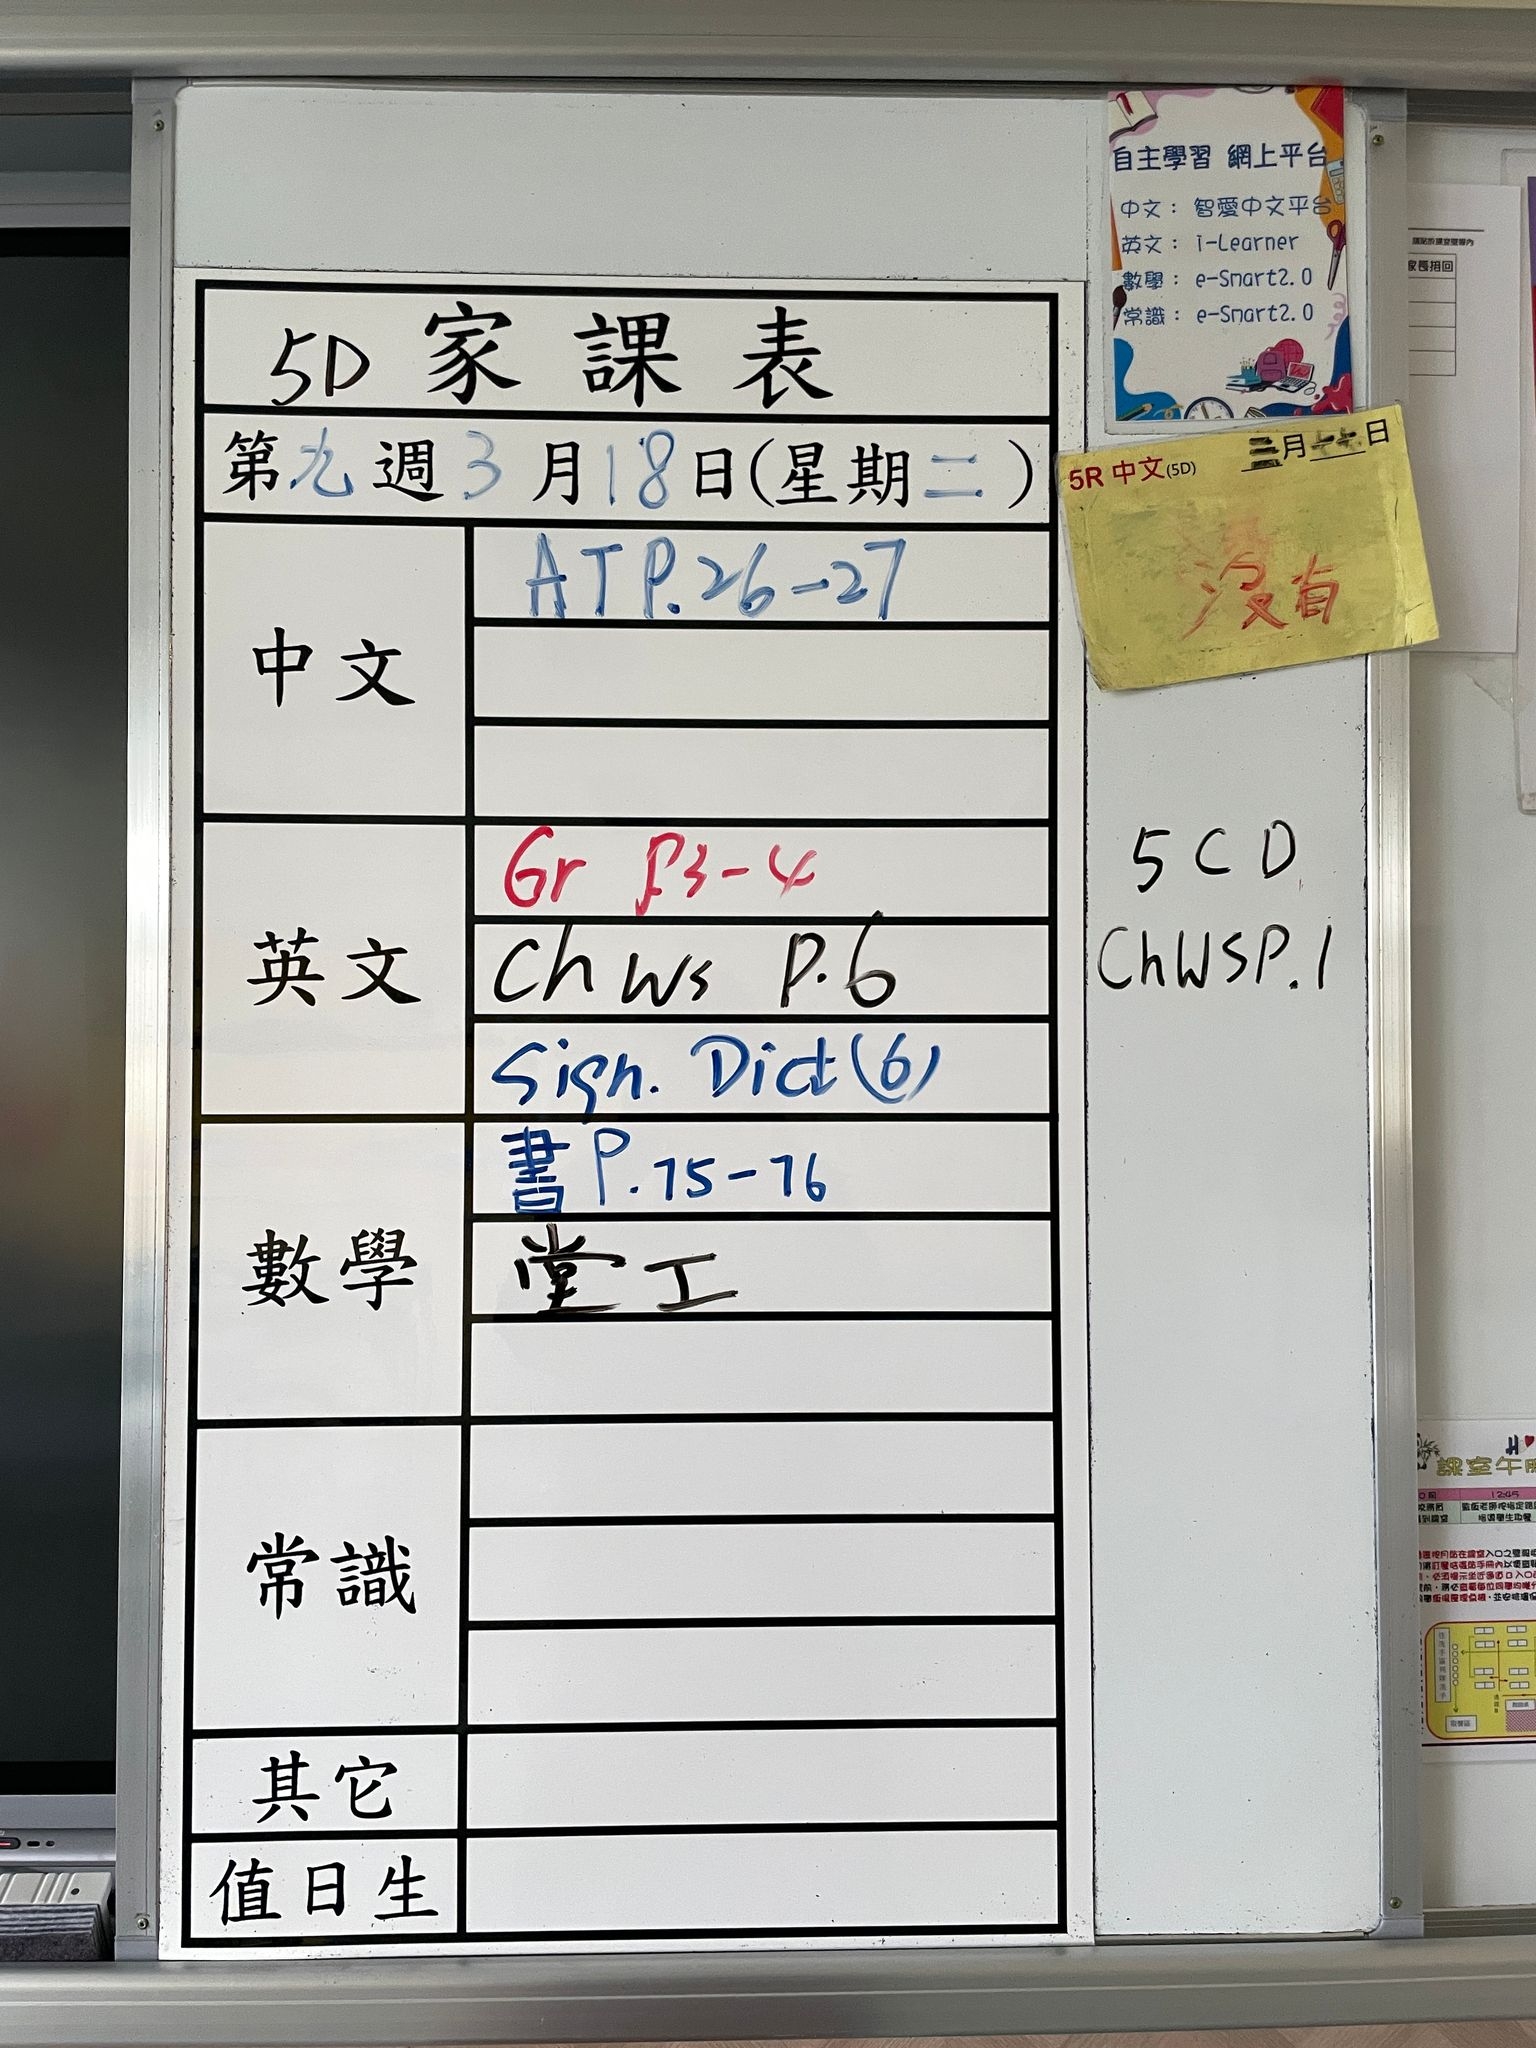 自主學習 網上平台
中文： 智愛中文平台
英文： i-Learner
數學： e-Smart2.0
常識： e-Smart2.0
家長捂回
5D 家課表
第九週3月18日(星期二)
5R 中文(5D)
月 日
沒有
中文
AT P.26-27
英文
Gr P3-4
Ch WS P.6
Sign. Dict (6)
5CD
ChWSP.1
數學
書 P.75-76
堂工
常識
其它
值日生
課室午
12:45